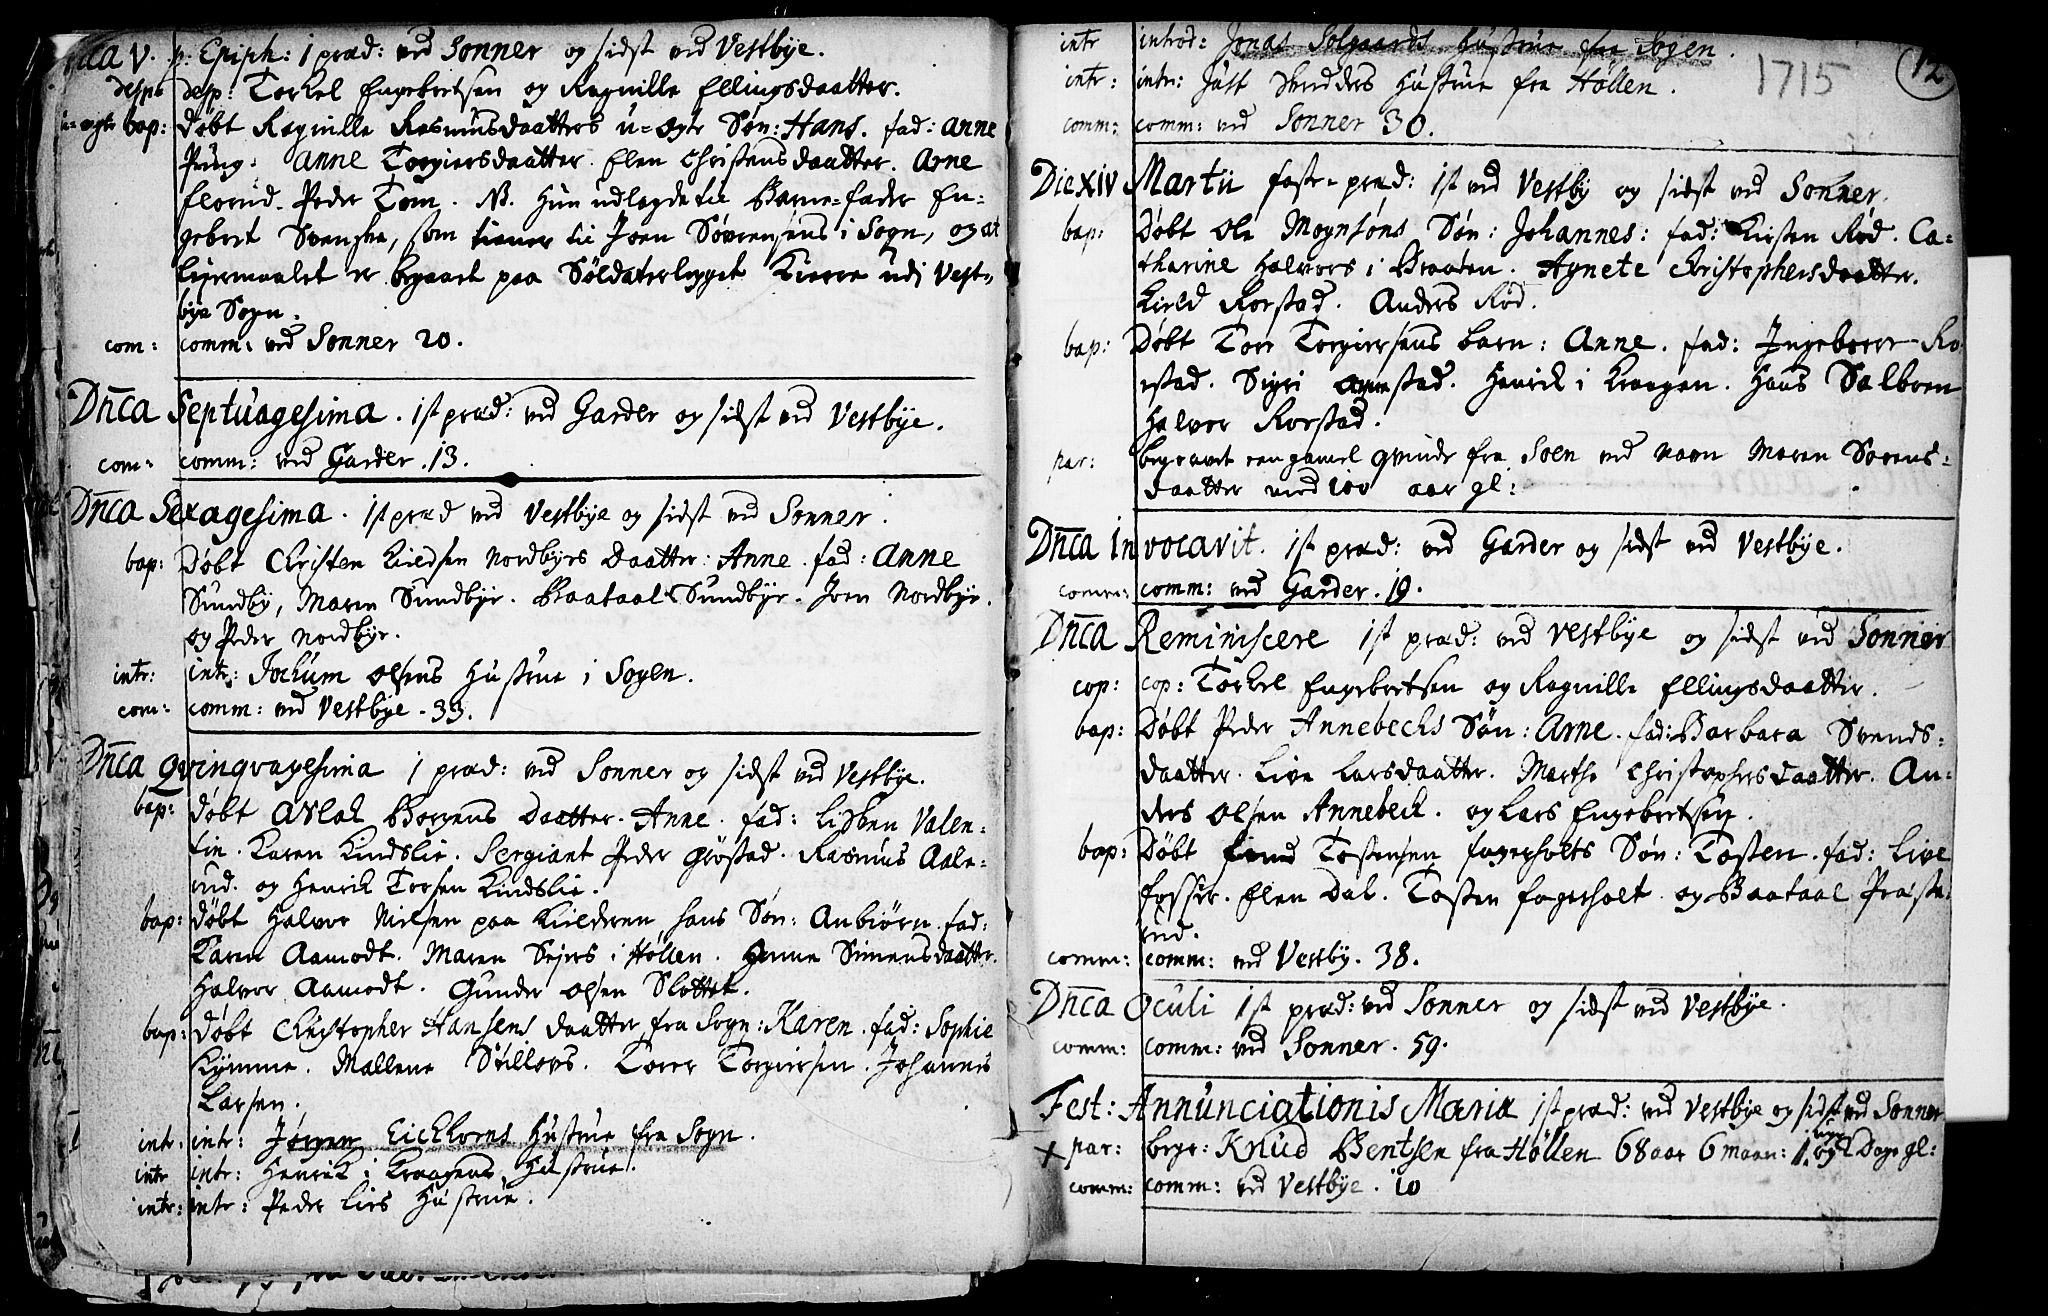 V. p: Epiph: 1 præd: ved Sonner og sidst ved Vestbye.
desp: desp: Torkel Engebretsen og Ragnille Ellingsdaatter.
u-egte bap: Døbt Ragnille Rasmusdaatters u-egte Søn: Hans. fad: Anne
Pung: Anne Torgiersdaatter. Elen Christensdaatter. Arne
florud. Peder Tom. NB. Hun udlagde til Barne-fader En-
gebret Svenske, som tiener til Joen Sørensens i Sogn, og at
leyermaalet er begaaet paa Soldaterlegget Kierre udi Vest-
bye Sogn.
com: comm: ved Sonner 20.
Dn̄ca Septuagesima. 1st præd: ved Garder og sidst ved Vestbye.
com: comm: ved Garder. 13.
Dn̄ca Sexagesima. 1st præd ved Vestbye og sidst ved Sonner.
bap: Døbt Christen Kieldsen Nordbyes Daatter: Anne. fad: Anne
Sundby, Maren Sundbye. Baataal Sundbye. Joen Nordbye.
og Peder Nordbye.
intr: intr: Jochum Olsens Hustrue i Sogen.
com: comm: ved Vestbye. 33.
Dn̄ca Qvinqvagesima 1 præd: ved Sonner og sidst ved Vestbye.
bap: døbt Aslak Borgens Daatter. Anne. fad: Lisben Valen-
tin. Karen Kindslie. Sergiant Peder Grøstad. Rasmus Aale-
rud. og Henrik Torsen Kindslie.
bap: døbt Halvor Nielsen paa Kielderen hans Søn: Anbiørn. fad:
Karen Aamodt. Maren Sejers i Høllen. Hanne Simensdaatter.
Halvor Aamodt. Gunder Olsen Slottet.
bap: døbt Christopher Hansens daatter fra Sogn: Karen. fad: Sophie
Kymme. Mallene Stillovs. Torer Torgiersen. Johannes
Larsen.
intr: intr: Jørgen Eickhorns Hustrue fra Sogn.
intr intr: Henrik i Kraagens Hustrue.
intr: intr: Peder Lies Hustrue.
12
1715
intr introd: Jonas Solgaards Hustrue fra Sogen.
intr: intr: Just Skredders Hustrue fra Høllen.
comm: comm: ved Sonner 30.
Die XIV Martii faste-præd: 1st ved Vestby og sidst ved Sonner.
bap: Døbt Ole Mognsøns Søn: Johannes: fad: Kirsten Rød. Ca-
tharine Halvors i Braaten. Agnete Christophersdaatter.
Kield Rorstad. Anders Rød.
bap: Døbt Tore Torgiersens barn: Anne. fad: Ingeborr Ro-
rstad. Sigri Arnestad. Henrik i Kraagen. Hans Solbren
Halvor Rorstad.
par: begravet een gamel qvinde fra Soen ved navn Maren Sørens-
daatter ved 100 aar gl:
Dn̄ca Invocavit. 1st præd: ved Garder og sidst ved Vestbye.
comm: comm: ved Garder. 19.
Dn̄ca Reminiscere 1st præd: ved Vestbye og sidst ved Sonner
cop: cop: Torkel Engebretsen og Ragnille Ellingsdaatter.
bap: Døbt Peder Annebechs Søn: Arne. fad: Barbara Svends-
daatter. Live Larsdaatter. Marthe Christophersdaatter. An-
ders Olsen Annebeck. og Lars Engebretsen.
bap: Døbt Tostensen fagerholts Søn: Tosten. fad: Live
fosser. Elen Dal. Tosten fagerholt. og Baataal Præste-
rud.
comm: comm: ved Vestby. 38.
Dn̄ca Oculi 1st præd: ved Sonner og sidst ved Vestbye.
comm: comm: ved Sonner. 59.
Fest: Annunciationis Mariæ 1st præd: ved Vestbye og sidst ved Sonner
+ par: begr: Knud Bentsen fra Høllen 68 aar 6 maan: 1 uge og Dage gl:
comm: comm: ved Vestbye. 10